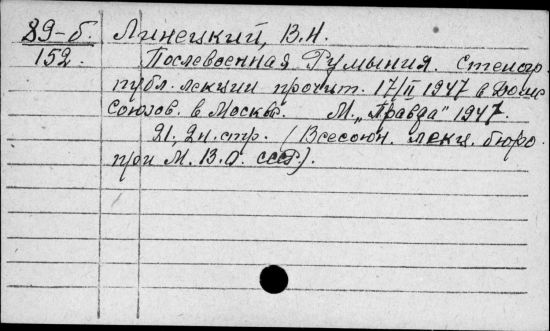 89-б. Линецкий, В.Н.
152. Послевоенная Румыния. Стеногр.
публ. лекции прочит. 17/II 1947 в Доме
союзов. в Москве. М. „Правда" 1947.
21, 2н. стр. (Всесоюзн. лекц. бюро
при М. В. О. СССР).